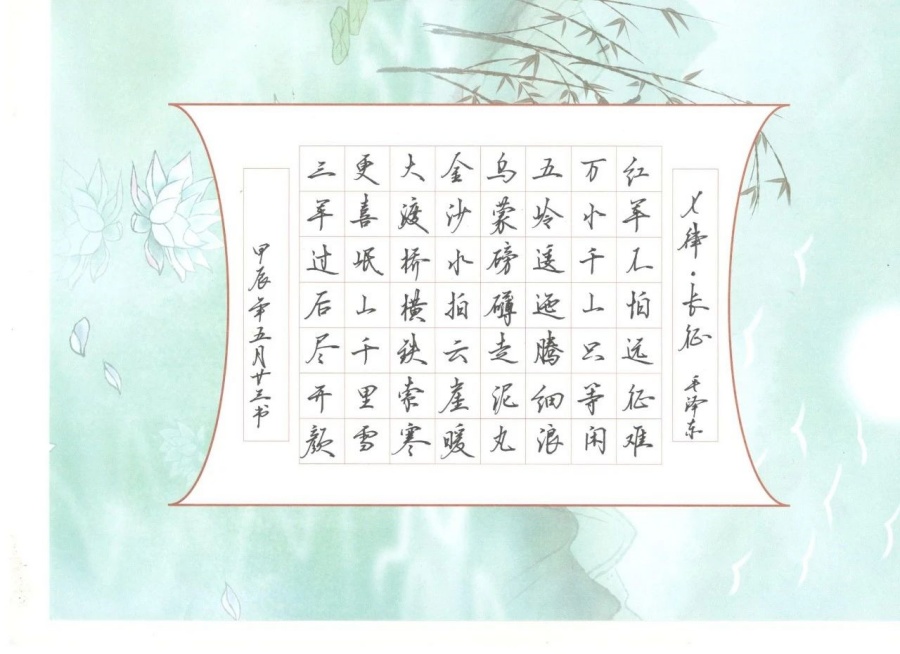 七律·长征 毛泽东
红军不怕远征难
万水千山只等闲
五岭逶迤腾细浪
乌蒙磅礴走泥丸
金沙水拍云崖暖
大渡桥横铁索寒
更喜岷山千里雪
三军过后尽开颜
甲辰年五月廿三书